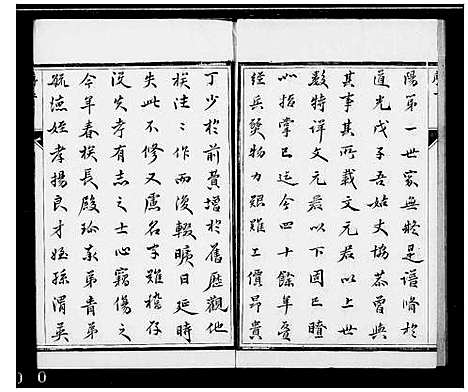 陽第一世家無能是譜脩於
道光戊子吾姑丈協恭曾與
其事其所載文元君以上世
數特詳文元君以下固已瞭
如指掌已迄今四十餘年疊
經兵燹物力艱難工價昂貴
丁少於前費增於舊歷觀他
族往往作而復輟曠日延時
失此不修又屬名字難稽存
沒失考有志之士心竊傷之
今年春族長殿珍家弟青第
毓德姪孝揚良才姪孫渭英